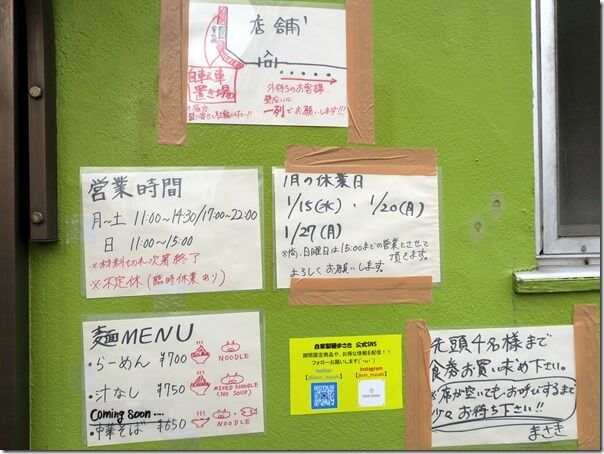 店舗
自転車
置き場
外待ちのお客様
一列でお願いします!!!
営業時間
月〜土 11:00〜14:30/17:00〜22:00
日 11:00〜15:00
※材料切れ次第終了
※不定休(臨時休業あり)
1月の休業日
1/15(水)・1/20(月)
1/27(月)
※尚、日曜日は15:00までの営業とさせて
頂きます。
よろしくお願いします。
麺MENU
・らーめん ¥700
NOODLE
・汁なし ¥750
MIXED NOODLE
(NO SOUP)
Coming soon....
・中華そば ¥650
NOODLE
自家製麺まさき 公式SNS
期間限定商品や、お得な情報を配信!!
フォローお願いします(´・ω・`)
twitter
Instagram
先頭4名様まで
食券お買い求め下さい。
※席が空いても、お呼びするまで
少々お待ち下さい!!
まさき